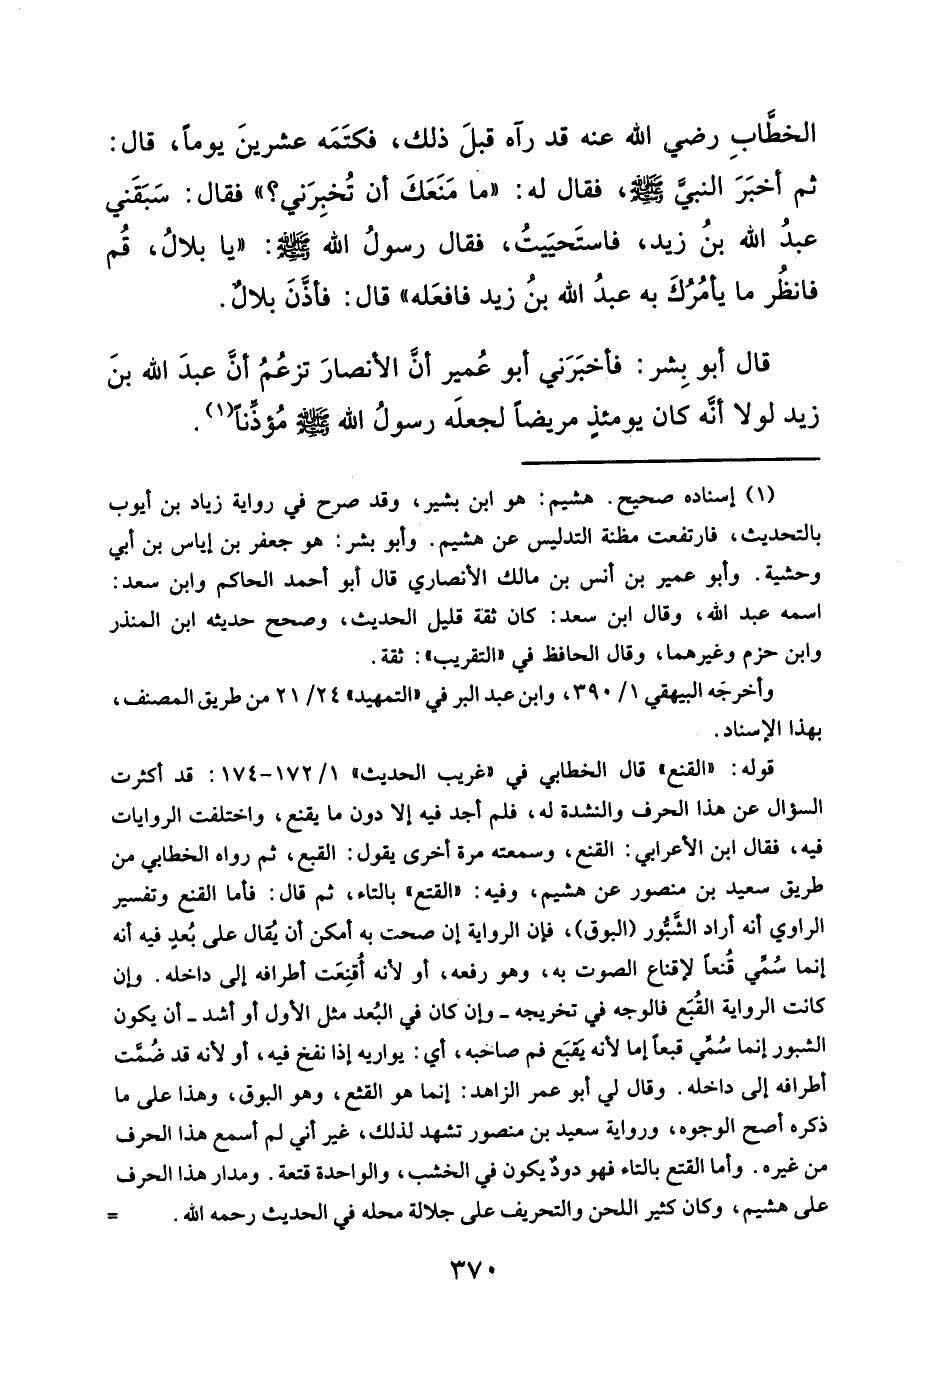 الخطَّابِ رضي الله عنه قد رآه قبلَ ذلك، فكتَمَه عشرينَ يوماً، قال:
ثم أخبَرَ النبيَّ ﷺ، فقال له: «ما مَنَعَكَ أن تُخبِرَني؟» فقال: سَبَقَني
عبدُ الله بنُ زيد، فاستَحيَيتُ، فقال رسولُ الله ﷺ: «يا بلالُ، قُم
فانظُر ما يأمُرُكَ به عبدُ الله بنُ زيد فافعَله» قال: فأذَّنَ بلالٌ.
قال أبو بِشر: فأخبَرَني أبو عُمير أنَّ الأنصارَ تزعُمُ أنَّ عبدَ الله بنَ
زيد لولا أنَّه كان يومئذٍ مريضاً لجعلَه رسولُ الله ﷺ مُؤذِّناً(١).
(١) إسناده صحيح. هشيم: هو ابن بشير، وقد صرح في رواية زياد بن أيوب
بالتحديث، فارتفعت مظنة التدليس عن هشيم. وأبو بشر: هو جعفر بن إياس بن أبي
وحشية. وأبو عمير بن أنس بن مالك الأنصاري قال أبو أحمد الحاكم وابن سعد:
اسمه عبد الله، وقال ابن سعد: كان ثقة قليل الحديث، وصحح حديثه ابن المنذر
وابن حزم وغيرهما، وقال الحافظ في «التقريب»: ثقة.
وأخرجَه البيهقي ١/ ٣٩٠، وابن عبد البر في «التمهيد» ٢٤/ ٢١ من طريق المصنف،
بهذا الإسناد.
قوله: «القنع» قال الخطابي في «غريب الحديث» ١/ ١٧٢-١٧٤: قد أكثرت
السؤال عن هذا الحرف والنشدة له، فلم أجد فيه إلا دون ما يقنع، واختلفت الروايات
فيه، فقال ابن الأعرابي: القنع، وسمعته مرة أخرى يقول: القبع، ثم رواه الخطابي من
طريق سعيد بن منصور عن هشيم، وفيه: «القتع» بالتاء، ثم قال: فأما القنع وتفسير
الراوي أنه أراد الشَّبُّور (البوق)، فإن الرواية إن صحت به أمكن أن يُقال على بُعدٍ فيه أنه
إنما سُمِّي قُنعاً لإقناع الصوت به، وهو رفعه، أو لأنه أُقنِعَت أطرافه إلى داخله. وإن
كانت الرواية القُبَع فالوجه في تخريجه ـ وإن كان في البُعد مثل الأول أو أشد ـ أن يكون
الشبور إنما سُمِّي قبعاً إما لأنه يَقبَع فم صاحبه، أي: يواريه إذا نفخ فيه، أو لأنه قد ضُمَّت
أطرافه إلى داخله. وقال لي أبو عمر الزاهد: إنما هو القثع، وهو البوق، وهذا على ما
ذكره أصح الوجوه، ورواية سعيد بن منصور تشهد لذلك، غير أني لم أسمع هذا الحرف
من غيره. وأما القتع بالتاء فهو دودٌ يكون في الخشب، والواحدة قتعة. ومدار هذا الحرف
على هشيم، وكان كثير اللحن والتحريف على جلالة محله في الحديث رحمه الله. =
٣٧٠